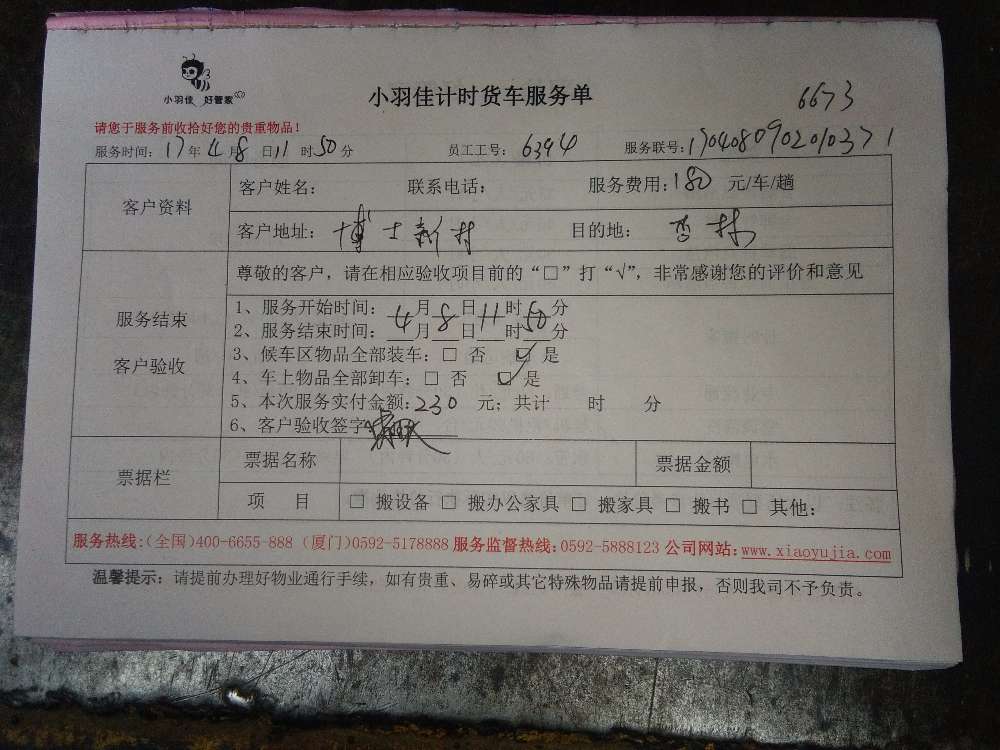 小羽佳 好管家
小羽佳计时货车服务单
6673
请您于服务前收拾好您的贵重物品！
服务时间：17年4月8日11时50分 员工工号：6394 服务联号：1704080902010371
客户资料
客户姓名： 联系电话： 服务费用：180 元/车/趟
客户地址：博士新村 目的地：杏林
服务结束
客户验收
尊敬的客户，请在相应验收项目前的“□”打“√”，非常感谢您的评价和意见
1、服务开始时间：4月8日11时50分
2、服务结束时间：___月___日___时___分
3、候车区物品全部装车：□ 否 ☑ 是
4、车上物品全部卸车：□ 否 ☑ 是
5、本次服务实付金额：230 元；共计 时 分
6、客户验收签字
票据栏
票据名称 票据金额
项 目 □ 搬设备 □ 搬办公家具 □ 搬家具 □ 搬书 □ 其他：
服务热线:(全国)400-6655-888 (厦门)0592-5178888 服务监督热线:0592-5888123 公司网站:www.xiaoyujia.com
温馨提示：请提前办理好物业通行手续，如有贵重、易碎或其它特殊物品请提前申报，否则我司不予负责。